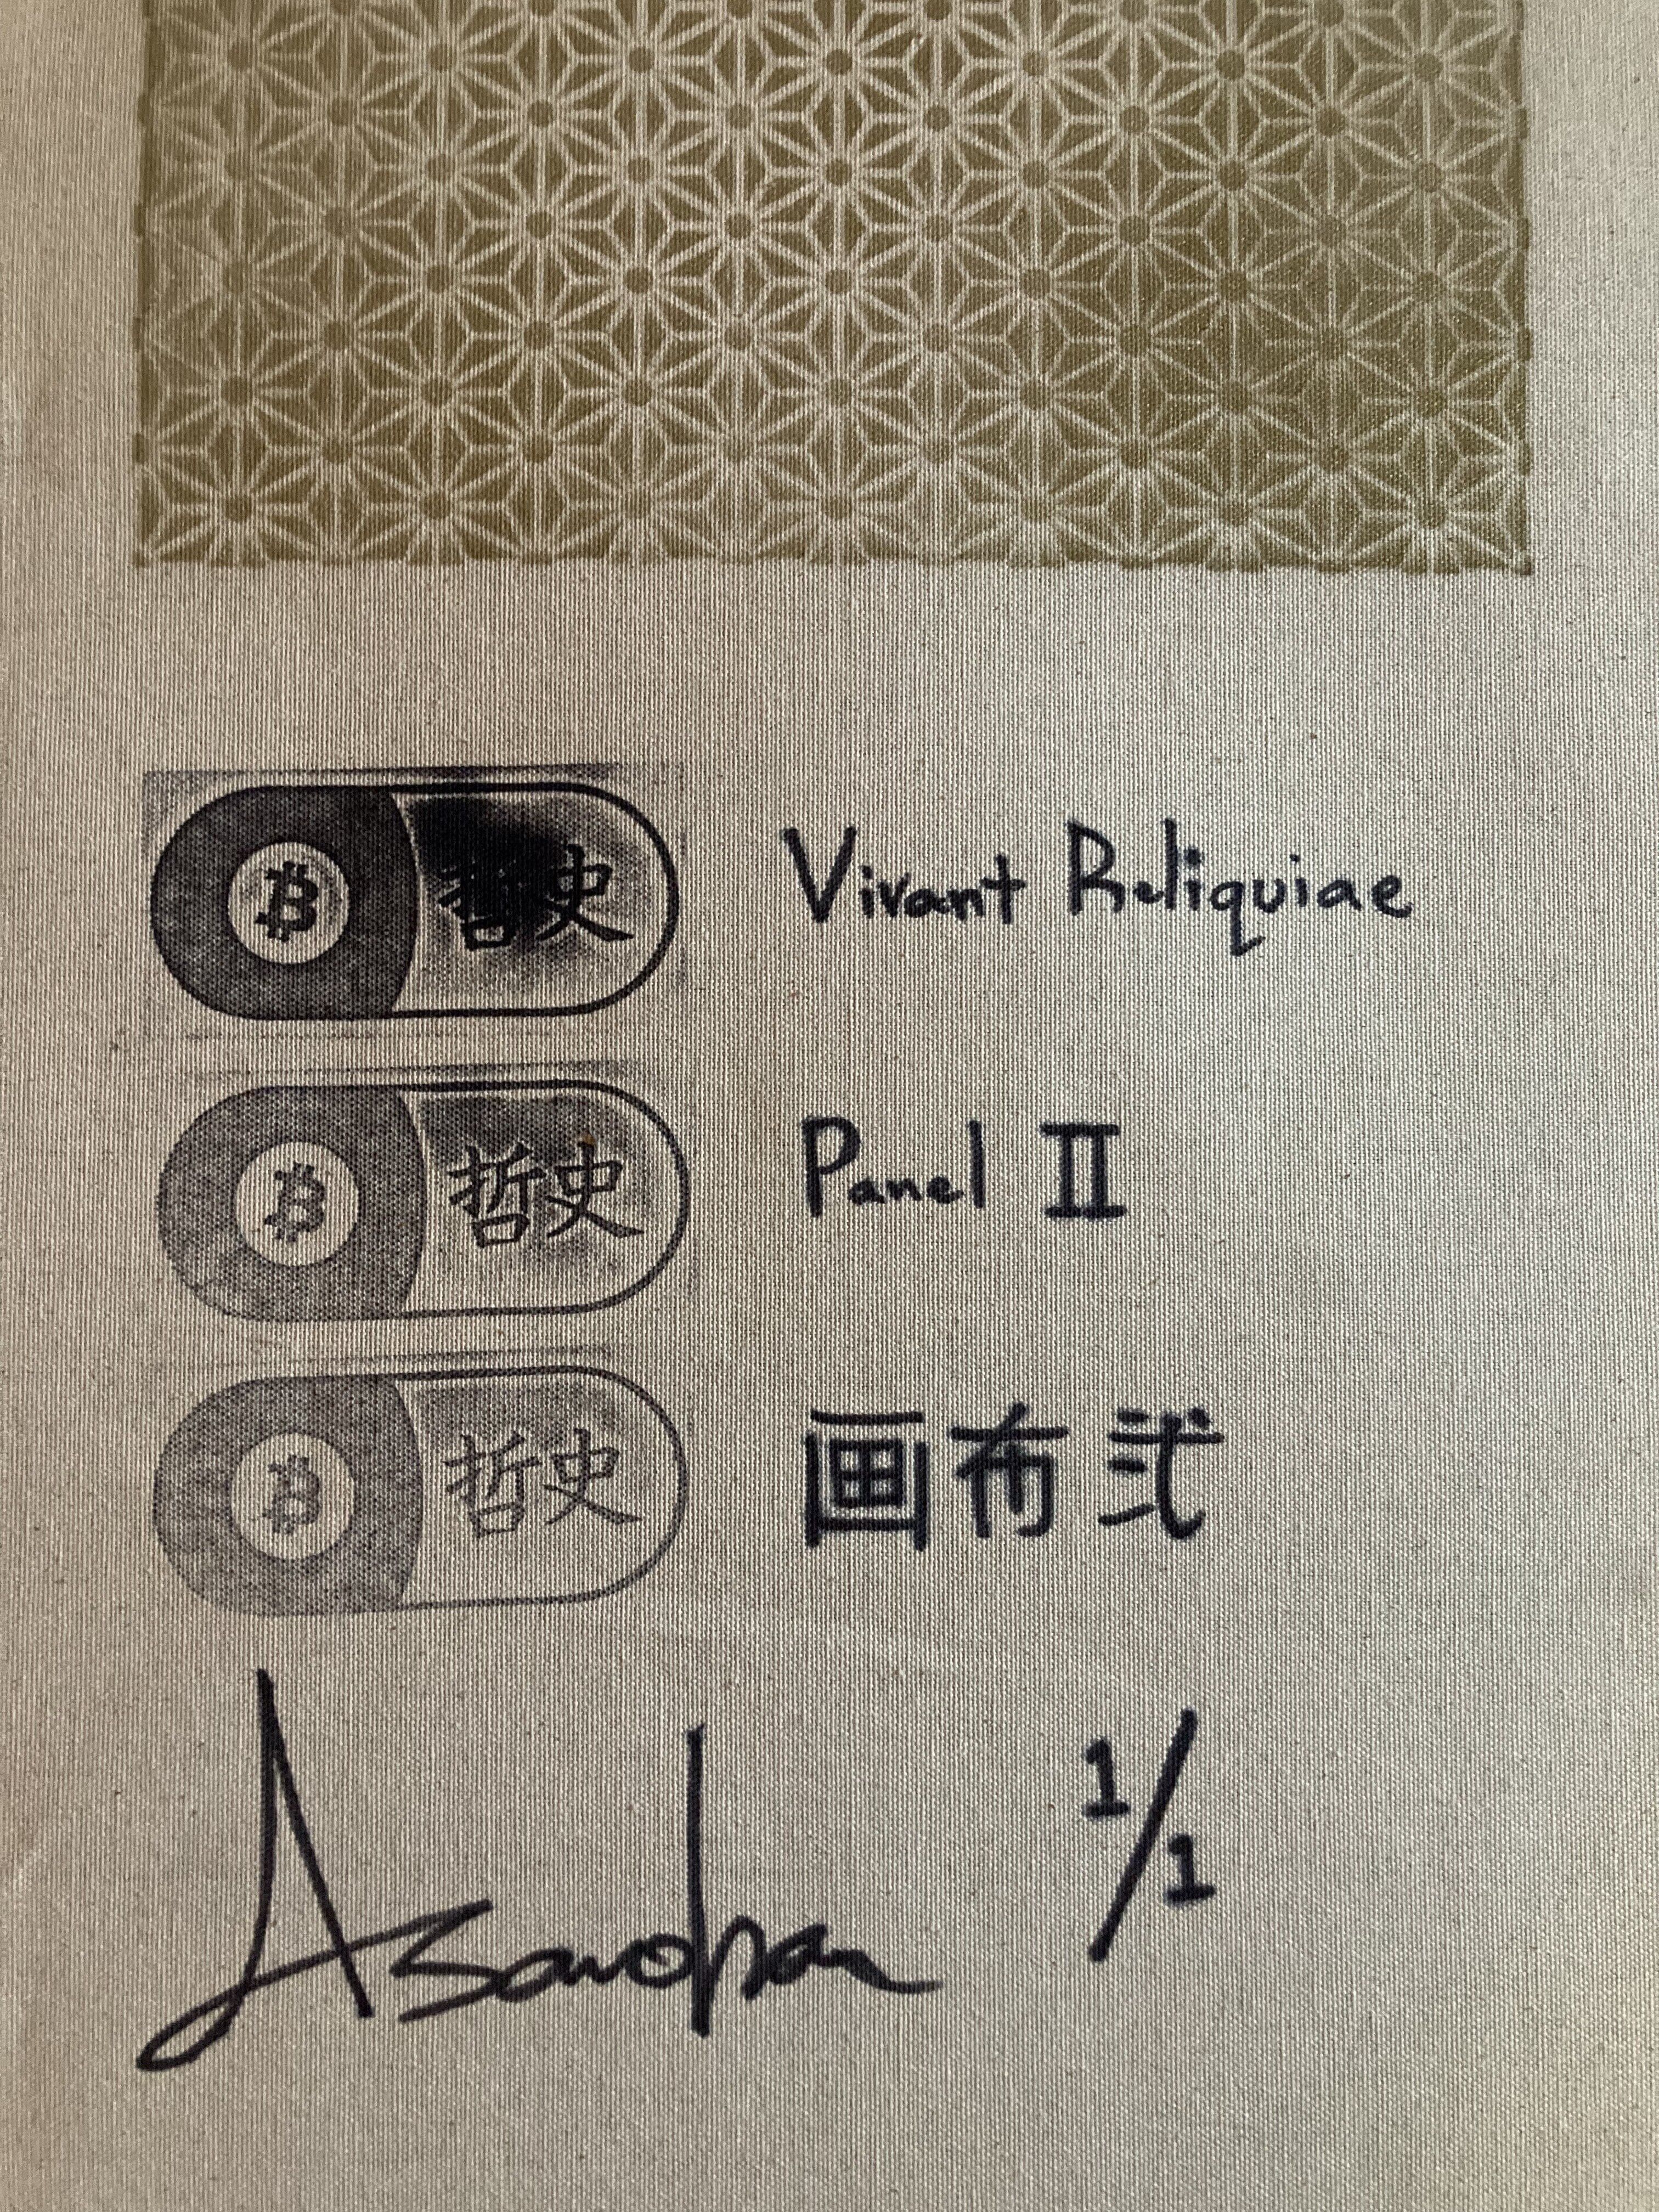 ₿ 哲史 Vivant Reliquiae
₿ 哲史 Panel II
₿ 哲史 画布弐
1/1